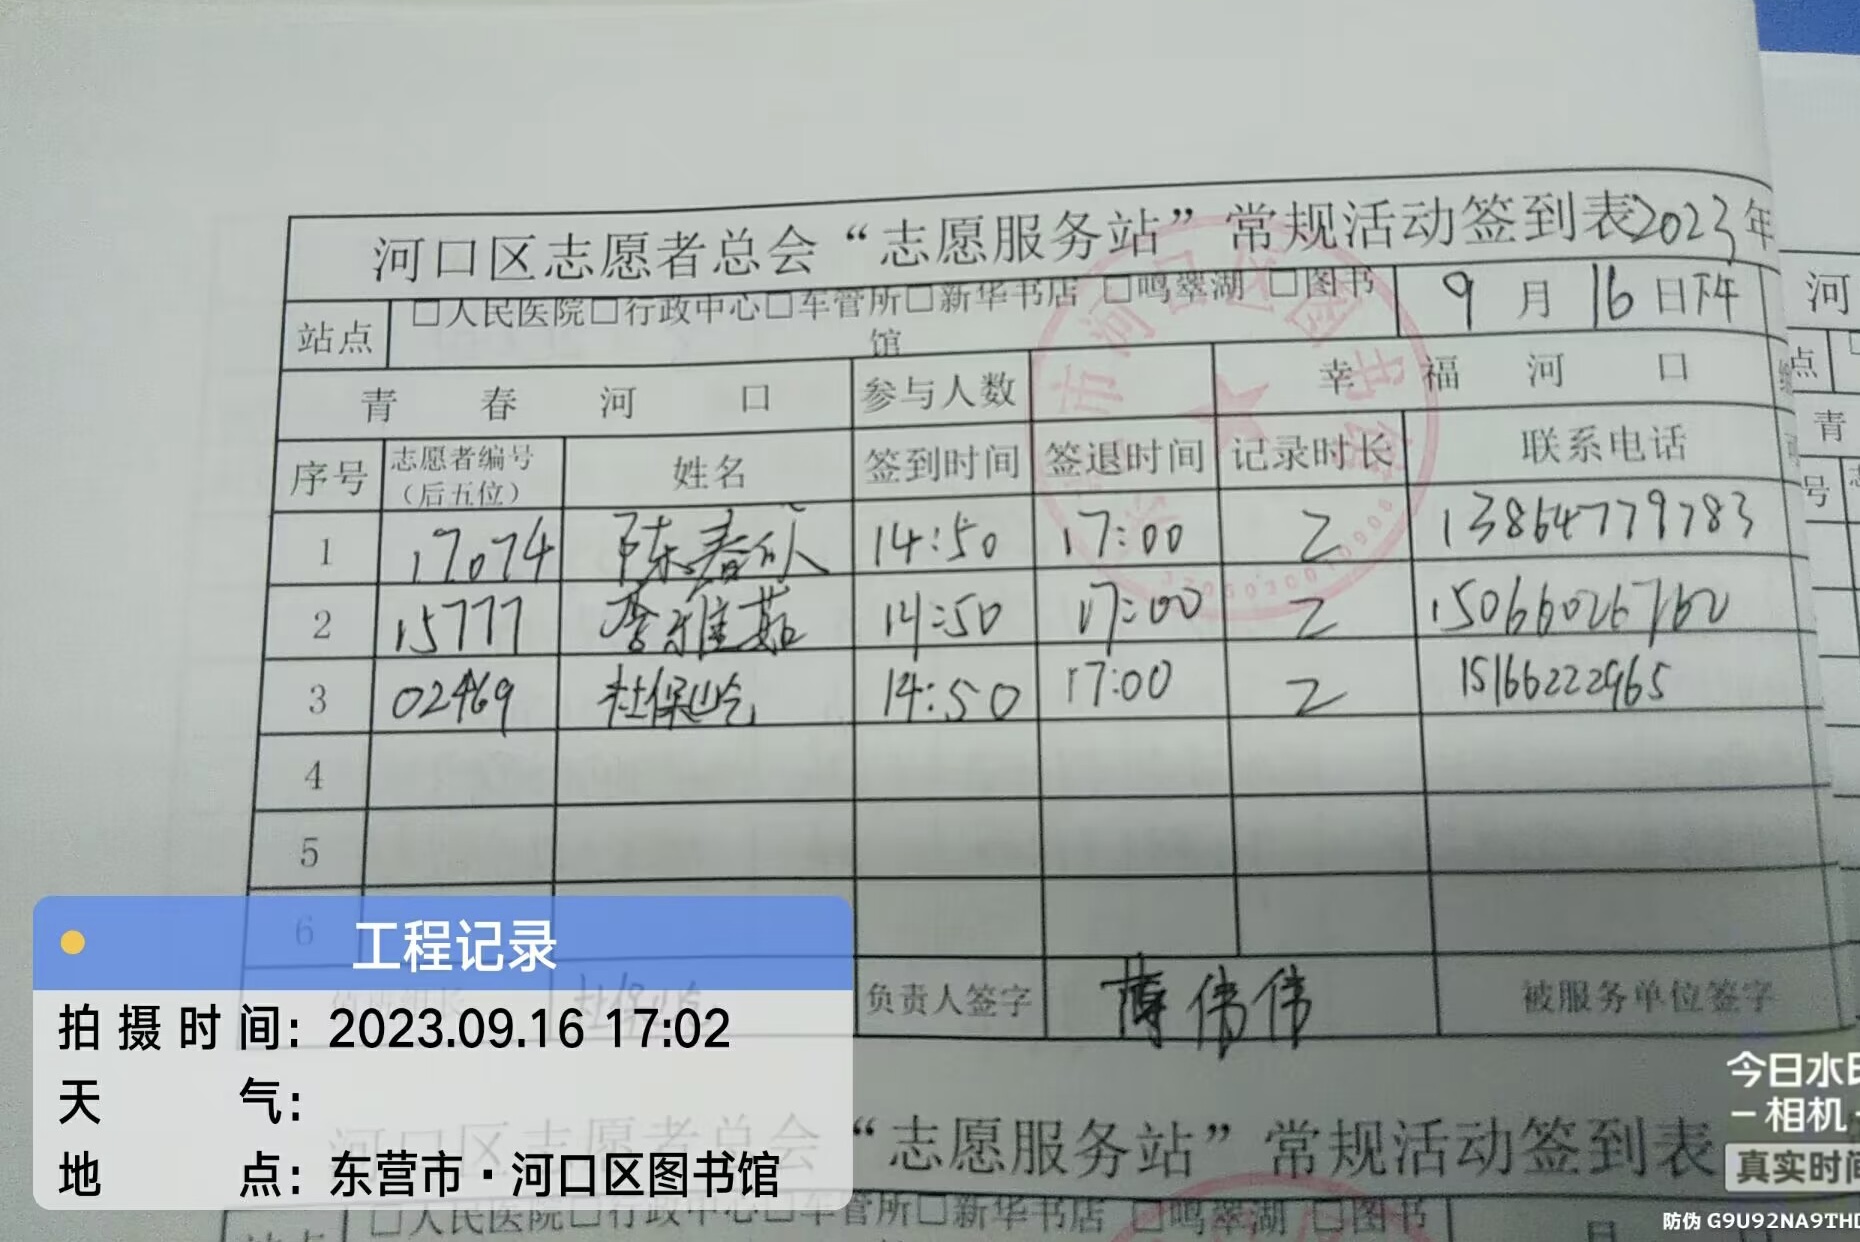 河口区志愿者总会“志愿服务站”常规活动签到表2023年
站点 □人民医院□行政中心□车管所□新华书店 □鸣翠湖 □图书馆 9月16日下午
青春河口 参与人数 幸福河口
序号 志愿者编号（后五位） 姓名 签到时间 签退时间 记录时长 联系电话
1 17074 陈春 14:50 17:00 2 13864779783
2 15777 李雅茹 14:50 17:00 2 15066026760
3 02469 杜保岭 14:50 17:00 2 15166222965
4
5
6
值班组长 杜保岭 负责人签字 薄伟伟 被服务单位签字
工程记录
拍摄时间：2023.09.16 17:02
天气：
地点：东营市·河口区图书馆
河口区志愿者总会“志愿服务站”常规活动签到表
站点 □人民医院□行政中心□车管所□新华书店 □鸣翠湖 □图书 月
河
点
青
号
今日水印
相机
真实时间
防伪 G9U92NA9TH